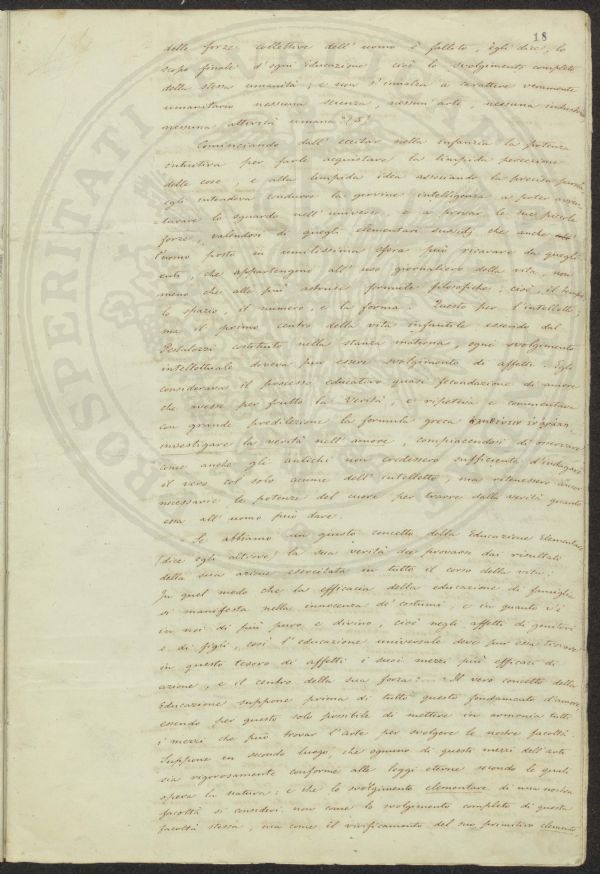 18
delle forze collettive dell' uomo è fallito, egli dice, lo
scopo finale d' ogni Educazione, cioè lo svolgimento completo
della stessa umanità; e non s' innalza a carattere veramente
umanitario nessuna scienza, nessun' arte, nessuna industria
nessuna attività umana
Cominciando dall' eccitar nella infanzia la potenza
intuitiva per farle acquistare la limpida percezione
delle cose e alla limpida idea associando la precisa parola
egli intendeva condurre la giovine intelligenza a poter avven-
turare lo sguardo nell' universo e a provar le sue piccole
forze, valendosi di quegli elementari sussidj che anche
l' uomo posto in umilissima sfera può ricavare da quegli
enti, che appartengono all' uso giornaliero della vita, non
meno che alle più astruse formule filosofiche; cioè, il tempo
lo spazio, il numero, e la forma. Questo per l' intelletto;
ma il primo centro della vita infantile essendo dal
Pestalozzi costituito nella stanza materna, ogni svolgimento
intellettuale doveva pur essere svolgimento di affetti. Egli
considerava il processo educativo quasi fecondazione di amore
che avesse per frutto la Verità, e ripeteva e commentava
con grande predilezione la formula greca
investigare la verità nell' amore, compiacendosi di osservare
come anche gli antichi non credessero sufficiente d' indagare
il vero col solo acume dell' intelletto, ma ritenessero ancor
necessarie le potenze del cuore per trarre dalla verità quanto
essa all' uomo può dare.
Se abbiamo un giusto concetto della Educazione Elementare
(dice egli altrove) la sua verità dee provarsi dai risultati
della sua azione esercitata in tutto il corso della vita.
In quel modo che la efficacia della educazione di famiglia
si manifesta nella innocenza de' costumi, e in quanto v' è
in noi di più puro e divino, cioè negli affetti di genitori
e di figli, così l' educazione universale deve pur essa trovare
in questo tesoro di affetti i suoi mezzi più efficaci di
azione, e il centro della sua forza. Il vero concetto della
Educazione suppone prima di tutto questo fondamento d' amore
essendo per questo solo possibile di mettere in armonia tutti
i mezzi che può trovar l' arte per svolgere le nostre facoltà.
Suppone in secondo luogo, che ognuno di questi mezzi dell' arte
sia rigorosamente conforme alle leggi eterne secondo le quali
opera la natura: e che lo svolgimento elementare di una nostra
facoltà si consideri non come lo svolgimento completo di questa
facoltà stessa, ma come il vivificamento del suo primitivo elemento
PROSPERITATI